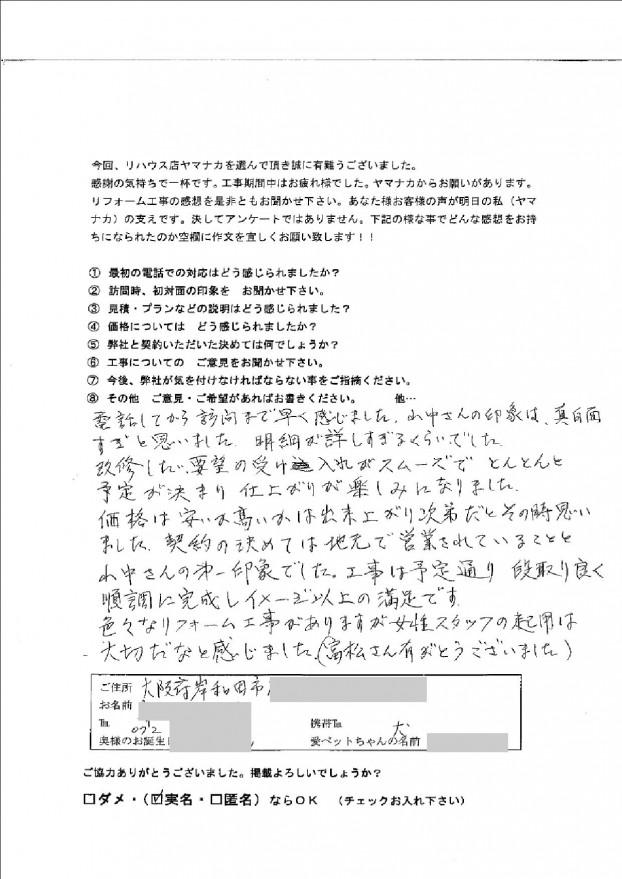 今回、リハウス店ヤマナカを選んで頂き誠に有難うございました。
感謝の気持ちで一杯です。工事期間中はお疲れ様でした。ヤマナカからお願いがあります。
リフォーム工事の感想を是非ともお聞かせ下さい。あなた様お客様の声が明日の私（ヤマ
ナカ）の支えです。決してアンケートではありません。下記の様な事でどんな感想をお持
ちになられたのか空欄に作文を宜しくお願い致します！！
① 最初の電話での対応はどう感じられましたか？
② 訪問時、初対面の印象を お聞かせ下さい。
③ 見積・プランなどの説明はどう感じられました？
④ 価格については どう感じられましたか？
⑤ 弊社と契約いただいた決めては何でしょうか？
⑥ 工事についての ご意見をお聞かせ下さい。
⑦ 今後、弊社が気を付けなければならない事をご指摘ください。
⑧ その他 ご意見・ご希望があればお書きください。 他…
電話してから訪問まで早く感じました。山中さんの印象は、真面目
すぎと思いました。明細が詳しすぎるくらいでした。
改修したい要望の受け入れがスムーズで とんとんと
予定が決まり 仕上がりが楽しみになりました。
価格は安いか高いかは出来上がり次第だとその時思い
ました。契約の決めては地元で営業されていることと
山中さんの第一印象でした。工事は予定通り 段取り良く
順調に完成しイメージ以上の満足です。
色々なリフォーム工事がありますが女性スタッフの起用は
大切だなと感じました。(富松さん有がとうございました)
ご住所 大阪府岸和田市
お名前
℡ 072 携帯℡
奥様のお誕生日 愛ペットちゃんの名前 犬
ご協力ありがとうございました。掲載よろしいでしょうか？
□ダメ・（☑実名・□匿名）ならOK （チェックお入れ下さい）